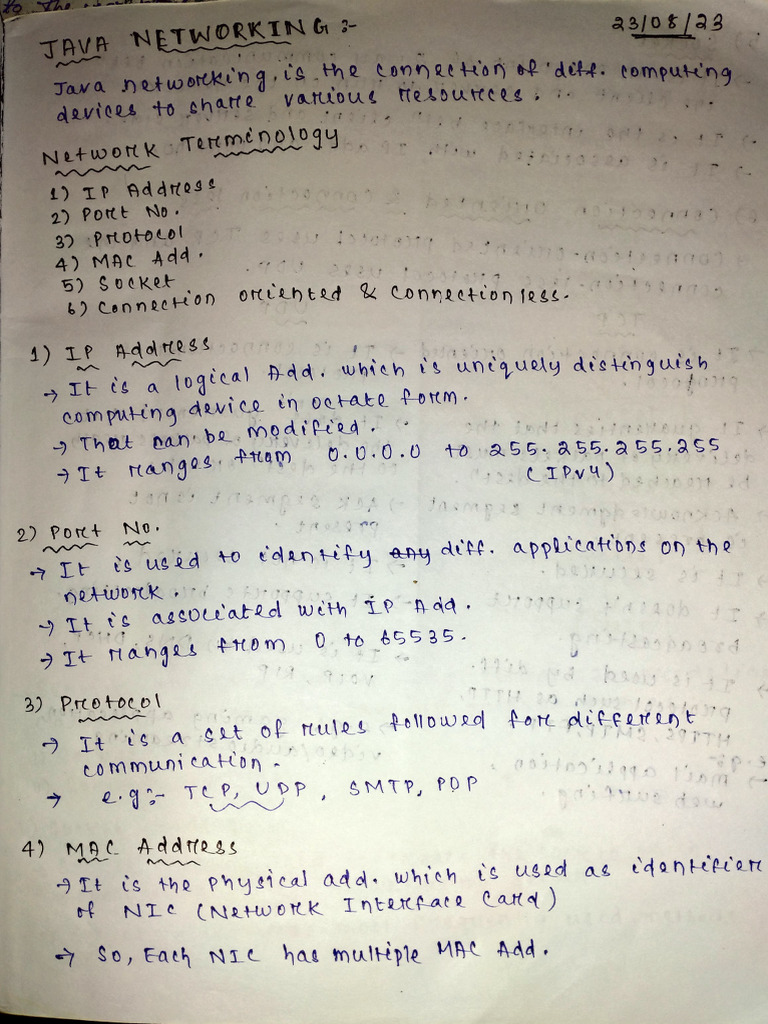 to the
JAVA NETWORKING :-
23/08/23
Java networking is the connection of diff. computing
devices to share various resources.
Network Terminology
1) IP Address
2) Port No.
3) Protocol
4) MAC Add.
5) Socket
6) Connection oriented & connectionless.
1) IP Address
→ It is a logical Add. which is uniquely distinguish
computing device in octate form.
→ That can be modified.
→ It ranges from 0.0.0.0 to 255.255.255.255
(IPv4)
2) Port No.
→ It is used to identify any diff. applications on the
network.
→ It is associated with IP Add.
→ It ranges from 0 to 65535.
3) Protocol
→ It is a set of rules followed for different
communication.
→ e.g :- TCP, UDP, SMTP, POP
4) MAC Address
→ It is the physical add. which is used as identifier
of NIC (Network Interface Card)
→ So, Each NIC has multiple MAC Add.